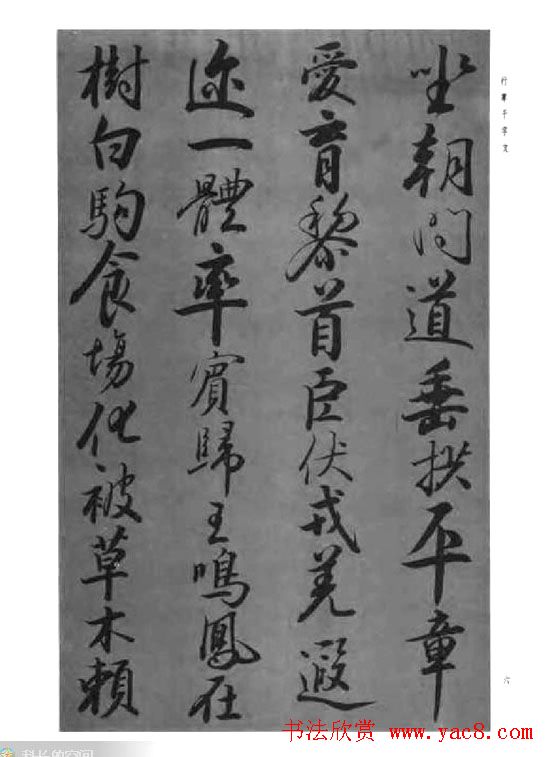 行書千字文
坐朝問道垂拱平章
愛育黎首臣伏戎羌遐
迩一體率賓歸王鳴鳳在
樹白駒食場化被草木賴
六
书法欣赏
www.yac8.com
科长的空间